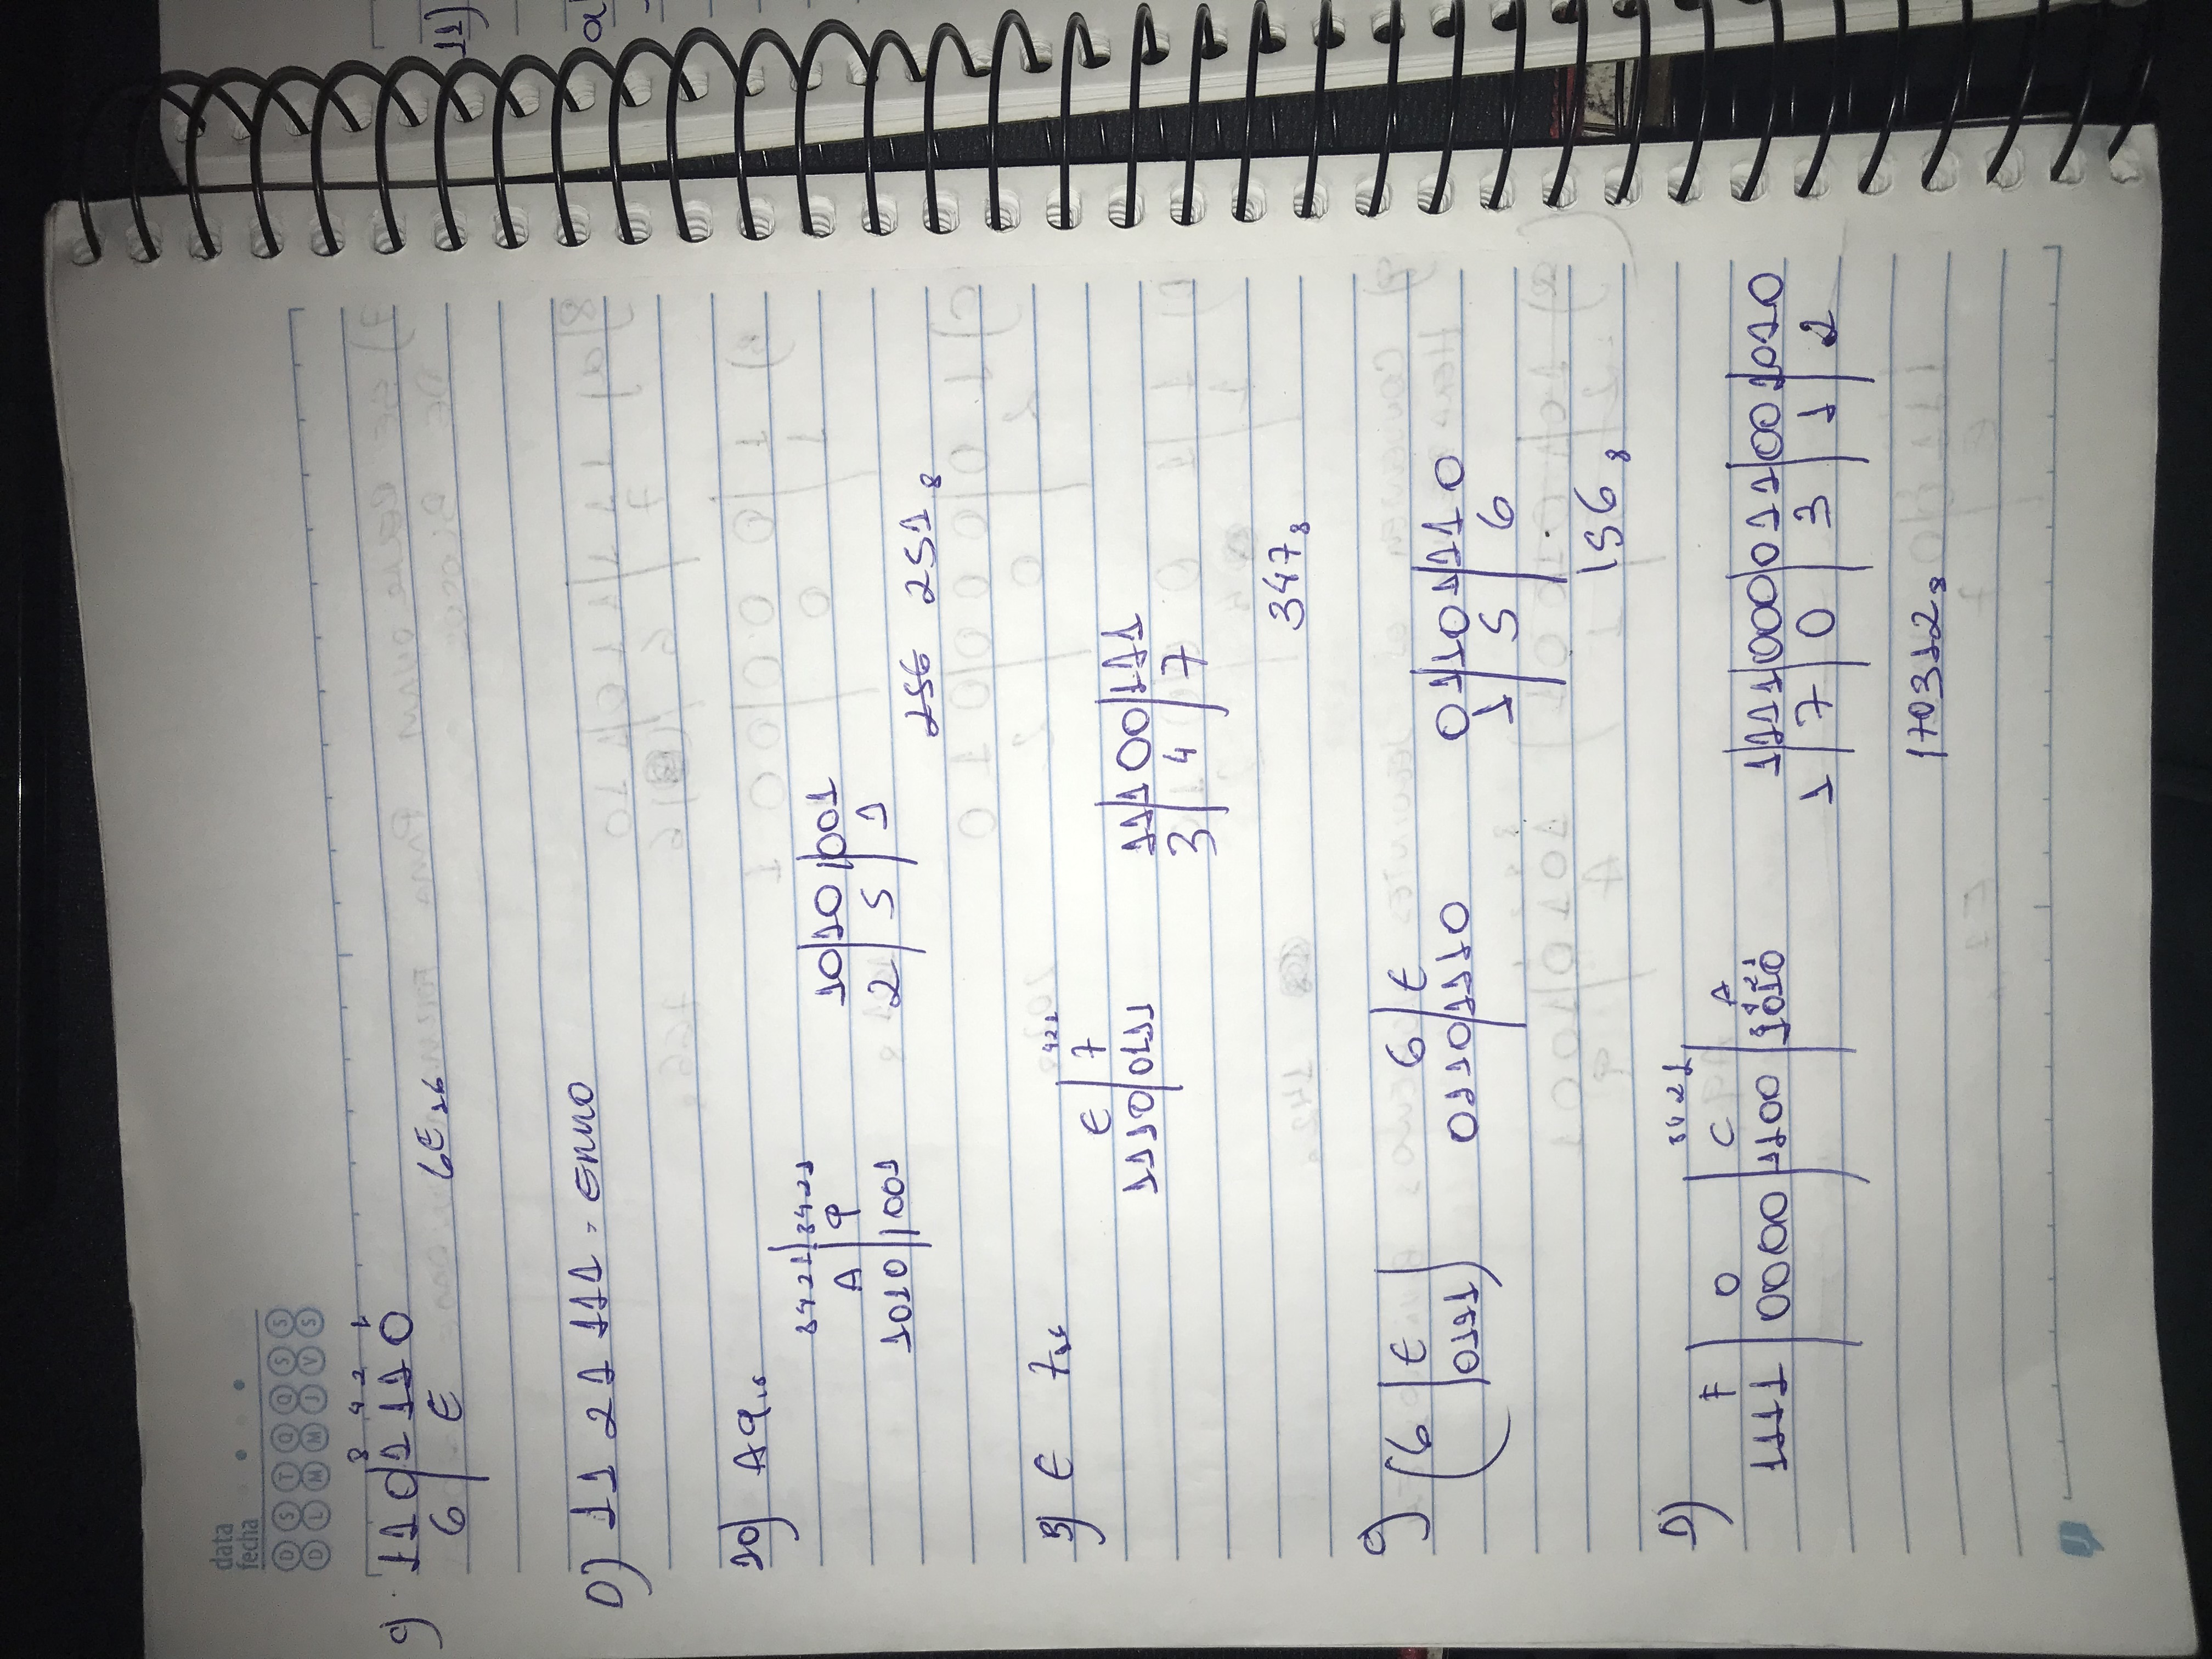 data
fecha
D S T Q Q S S
D L M M J V S
8 4 2 1
c) 110|1110
6 | E 6E16
D) 11 21 111 = ERRO
10) A916
8421|8421
A | 9
1010|1001
10|101|001
2 | 5 | 1
256 2518
B) E 716
421
E | 7
1110|0111
11|100|111
3 | 4 | 7
3478
c) (6 | E
0111)
6 | E
0110|1110
01|101|110
1 | 5 | 6
1568
D)
8421
F | 0 | C | A
8421
1111|0000|1100|1010
1|111|000|011|001|010
1 | 7 | 0 | 3 | 1 | 2
1703128
11)
a
J